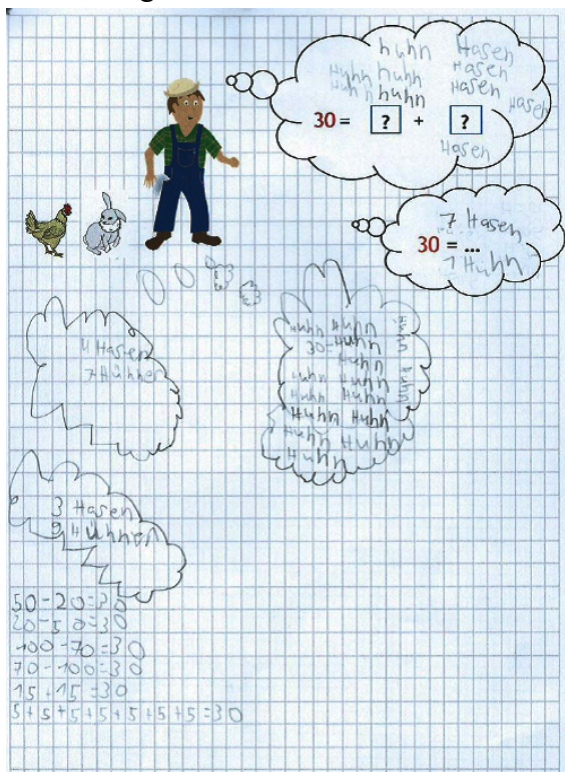 huhn Hasen
Huhn huhn Hasen
Huhn huhn Hasen
Hasen
30 = ? + ?
Hasen
7 Hasen
30 = ...
1 Huhn
4 Hasen
7 Hühner
huhn Huhn Huhn
30=Huhn
Huhn huhn
huhn Huhn
Huhn Huhn
Huhn Huhn
Huhn Huhn
Huhn
3 Hasen
9 Hühner
50-20=30
20-50=30
100-70=30
70-100=30
15+15=30
5+5+5+5+5+5+5=30